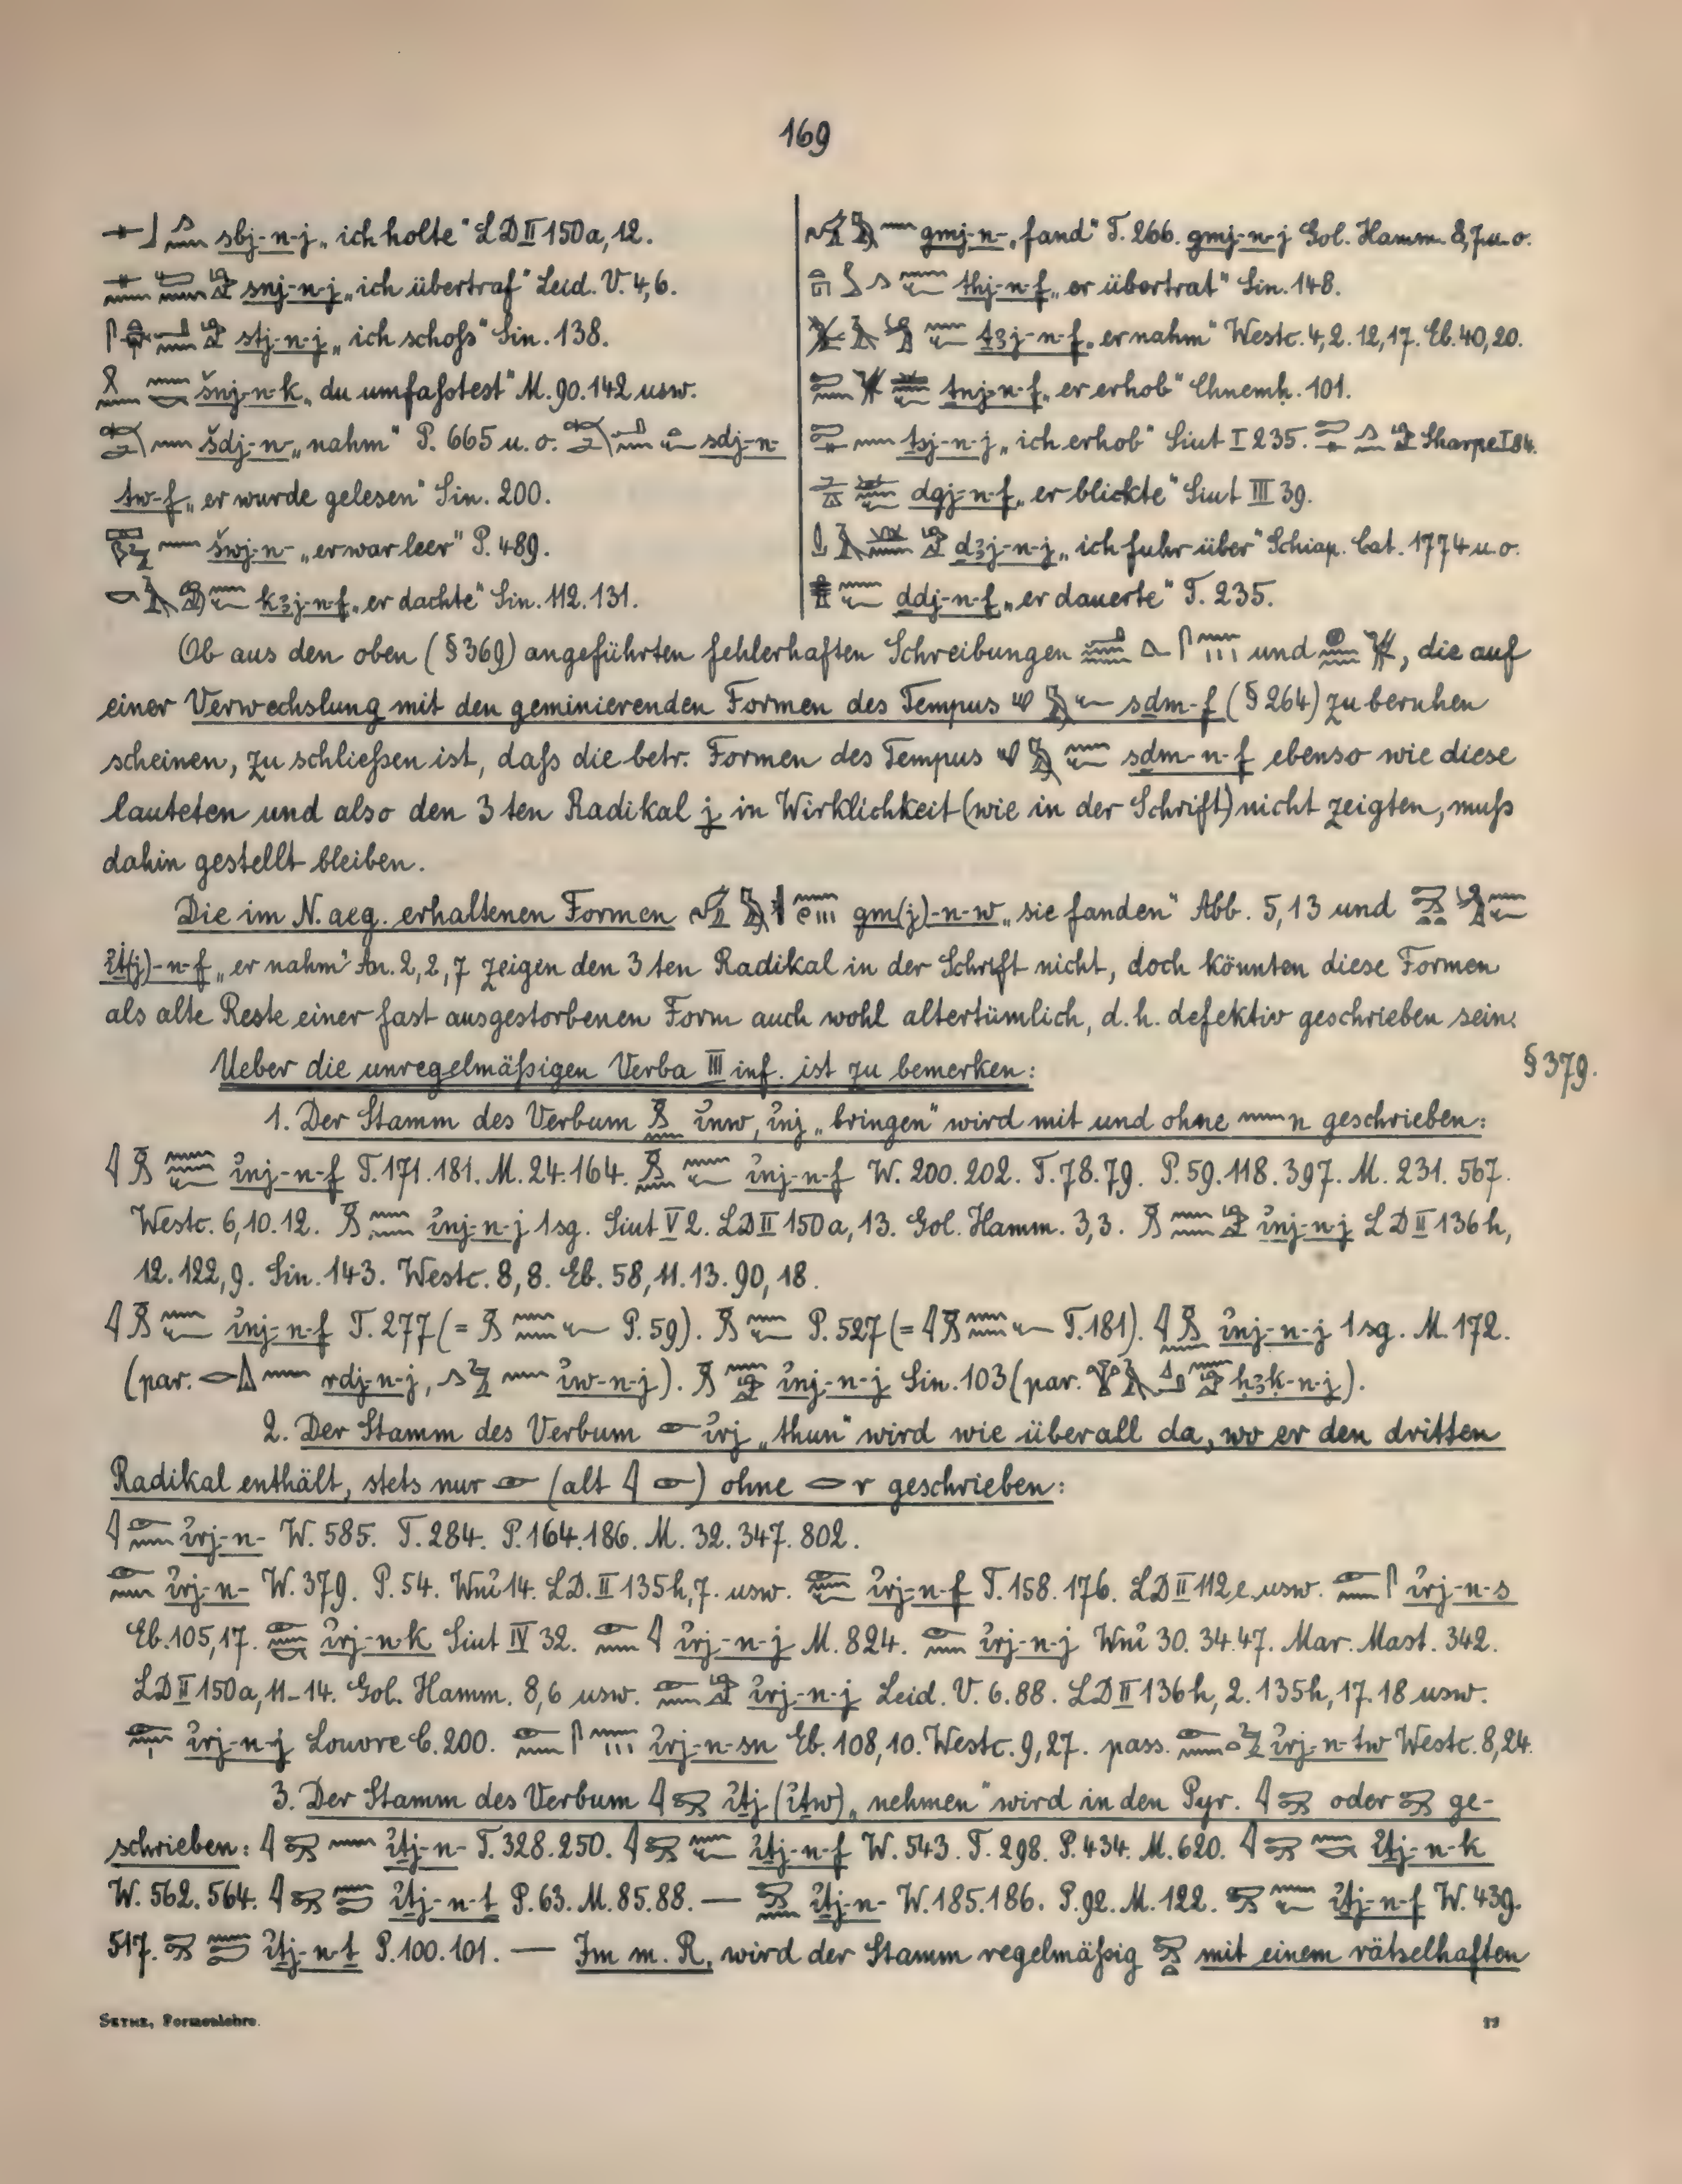 169
sbj-n-j „ich holte" LD II 150a, 12.
snj-n-j „ich übertraf" Leid. V. 4,6.
stj-n-j „ich schoſs" Sin. 138.
šnj-n-k „du umfaſstest" M. 90. 142 usw.
šdj-n- „nahm" P. 665 u. o. sdj-n-
tw-f „er wurde gelesen" Sin. 200.
šwj-n- „er war leer" P. 489.
kꜣj-n-f „er dachte" Sin. 112. 131.
gmj-n- „fand" T. 266. gmj-n-j Gol. Hamm. 8,7 u. o.
thj-n-f „er übertrat" Sin. 148.
ṯꜣj-n-f „er nahm" Westc. 4,2. 12,17. Eb. 40,20.
tnj-n-f „er erhob" Chnemh. 101.
ṯsj-n-j „ich erhob" Siut I 235. Sharpe I 84.
dgj-n-f „er blickte" Siut III 39.
dꜣj-n-j „ich fuhr über" Schiap. Cat. 1774 u. o.
ḏdj-n-f „er dauerte" T. 235.
Ob aus den oben (§ 369) angeführten fehlerhaften Schreibungen und , die auf
einer Verwechslung mit den geminierenden Formen des Tempus sḏm-f (§ 264) zu beruhen
scheinen, zu schlieſsen ist, daſs die betr. Formen des Tempus sḏm-n-f ebenso wie diese
lauteten und also den 3ten Radikal j in Wirklichkeit (wie in der Schrift) nicht zeigten, muſs
dahin gestellt bleiben.
Die im N. aeg. erhaltenen Formen gm(j)-n-w „sie fanden" Abb. 5,13 und
i҆ṯ(j)-n-f „er nahm" An. 2,2,7 zeigen den 3ten Radikal in der Schrift nicht, doch könnten diese Formen
als alte Reste einer fast ausgestorbenen Form auch wohl altertümlich, d. h. defektiv geschrieben sein.
Ueber die unregelmäſsigen Verba III inf. ist zu bemerken: § 379.
1. Der Stamm des Verbum i҆nw, i҆nj „bringen" wird mit und ohne n geschrieben:
i҆nj-n-f T. 171. 181. M. 24. 164. i҆nj-n-f W. 200. 202. T. 78. 79. P. 59. 118. 397. M. 231. 567.
Westc. 6,10. 12. i҆nj-n-j 1 sg. Siut V 2. LD II 150a, 13. Gol. Hamm. 3,3. i҆nj-n-j LD II 136h,
12. 122,9. Sin. 143. Westc. 8,8. Eb. 58,11. 13. 90,18.
i҆nj-n-f T. 277 (= P. 59). P. 527 (= T. 181). i҆nj-n-j 1 sg. M. 172.
(par. rdj-n-j, i҆w-n-j). i҆nj-n-j Sin. 103 (par. ḥꜣḳ-n-j).
2. Der Stamm des Verbum i҆rj „thun" wird wie überall da, wo er den dritten
Radikal enthält, stets nur (alt ) ohne r geschrieben:
i҆rj-n- W. 585. T. 284. P. 164. 186. M. 32. 347. 802.
i҆rj-n- W. 379. P. 54. Wni҆ 14. LD. II 135h, 7. usw. i҆rj-n-f T. 158. 176. LD II 112e. usw. i҆rj-n-s
Eb. 105,17. i҆rj-n-k Siut IV 32. i҆rj-n-j M. 824. i҆rj-n-j Wni҆ 30. 34. 47. Mar. Mast. 342.
LD II 150a, 11-14. Gol. Hamm. 8,6 usw. i҆rj-n-j Leid. V. 6. 88. LD II 136h, 2. 135h, 17. 18 usw.
i҆rj-n-j Louvre C. 200. i҆rj-n-sn Eb. 108,10. Westc. 9,27. pass. i҆rj-n-tw Westc. 8,24.
3. Der Stamm des Verbum i҆ṯj (i҆ṯw) „nehmen" wird in den Pyr. oder ge-
schrieben: i҆ṯj-n- T. 328. 250. i҆ṯj-n-f W. 543. T. 298. P. 434. M. 620. i҆ṯj-n-k
W. 562. 564. i҆ṯj-n-ṯ P. 63. M. 85. 88. — i҆ṯj-n- W. 185. 186. P. 92. M. 122. i҆ṯj-n-f W. 439.
517. i҆ṯj-n-ṯ P. 100. 101. — Im m. R. wird der Stamm regelmäſsig mit einem rätselhaften
SETHE, Formenlehre.